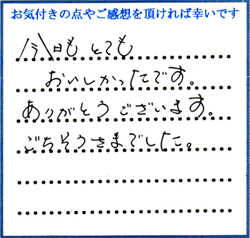 お気付きの点やご感想を頂ければ幸いです
今日も とても
おいしかったです。
ありがとうございます。
ごちそうさまでした。